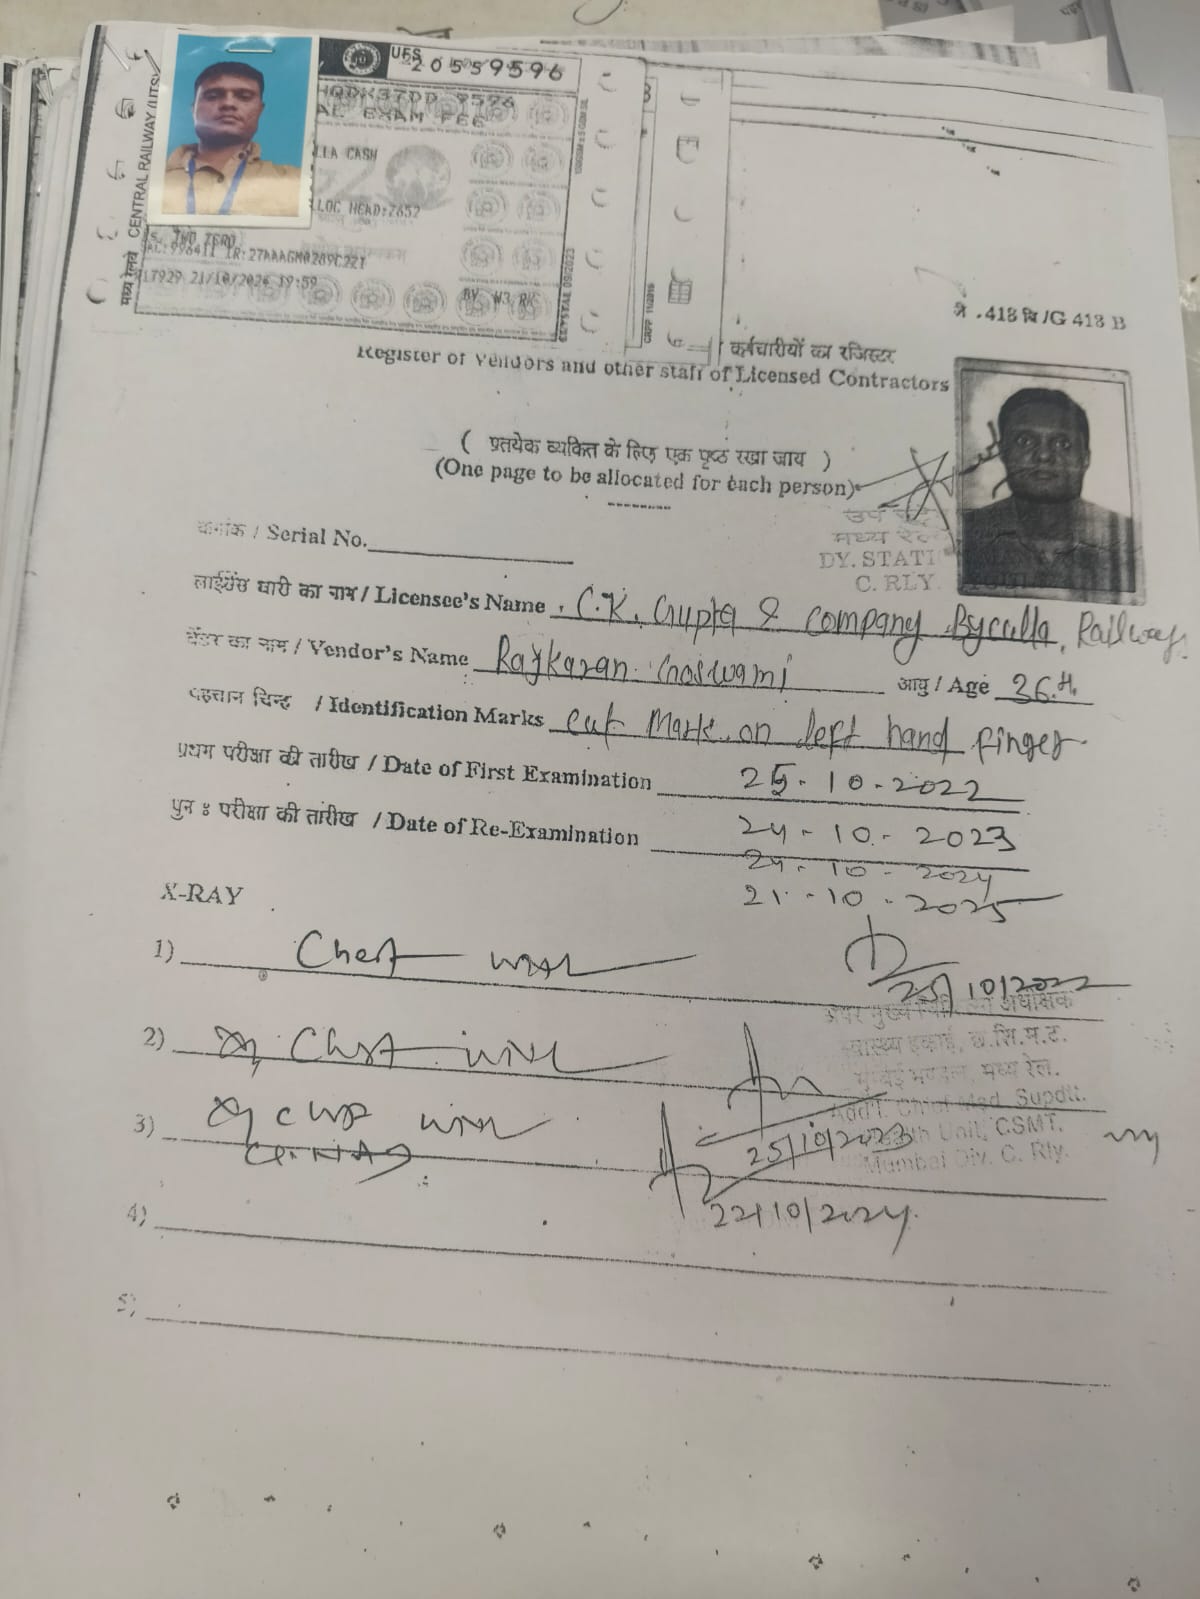 मध्य रेलवे CENTRAL RAILWAY (UTS)
UFS
20559596
HQDK37DD 9596
AL EXAM FEE
LLA CASH
LLOC HEAD:Z652
TWO ZERO
IR:27AAAGM0289C2ZI
17929 21/10/2024 19:59
09/2023
.418 बि/G 418 B
कर्मचारीयों का रजिस्टर
Register of Vendors and other staff of Licensed Contractors
( प्रतयेक व्यकित के लिए एक पृष्ठ रखा जाय )
(One page to be allocated for each person)
उप
मध्य रेल
DY. STATI
C. RLY.
/ Serial No.
लाईसेंस धारी का नाम / Licensee's Name C.K. Gupta & company Byculla, Railway
वेंडर का नाम / Vendor's Name Rajkaran Goswami आयु / Age 36
/ Identification Marks cut Mark on left hand finger
प्रथम परीक्षा की तारीख / Date of First Examination 25-10-2022
पुनः परीक्षा की तारीख / Date of Re-Examination 24-10-2023
24-10-2024
21-10-2025
X-RAY
1) Chest
25/10/2022
अपर मुख्य चिकित्सा अधीक्षक
स्वास्थ्य इकाई, छ.सि.म.ट.
मुंबई मण्डल, मध्य रेल.
2) Chest
Add'l. Chief Med. Supdt.
Health Unit, CSMT.
Mumbai Div. C. Rly.
25/10/2023
3)
22/10/2024
4)
5)